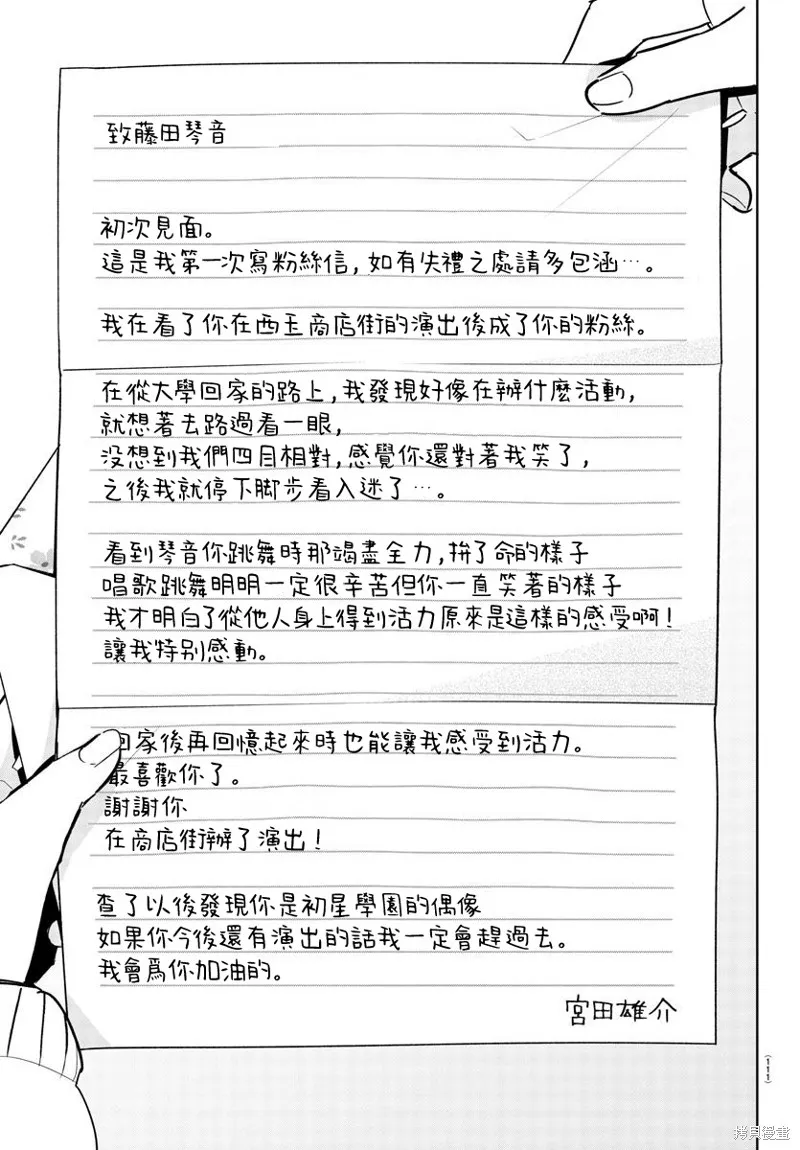 致藤田琴音
初次見面。
這是我第一次寫粉絲信,如有失禮之處請多包涵…。
我在看了你在西王商店街的演出後成了你的粉絲。
在從大學回家的路上,我發現好像在辦什麼活動,
就想著去路過看一眼,
沒想到我們四目相對,感覺你還對著我笑了,
之後我就停下腳步看入迷了…。
看到琴音你跳舞時那竭盡全力,拚了命的樣子
唱歌跳舞明明一定很辛苦但你一直笑著的樣子
我才明白了從他人身上得到活力原來是這樣的感受啊!
讓我特別感動。
回家後再回憶起來時也能讓我感受到活力。
最喜歡你了。
謝謝你
在商店街辦了演出!
查了以後發現你是初星學園的偶像
如果你今後還有演出的話我一定會趕過去。
我會爲你加油的。
宮田雄介
(111)
拷貝漫畫